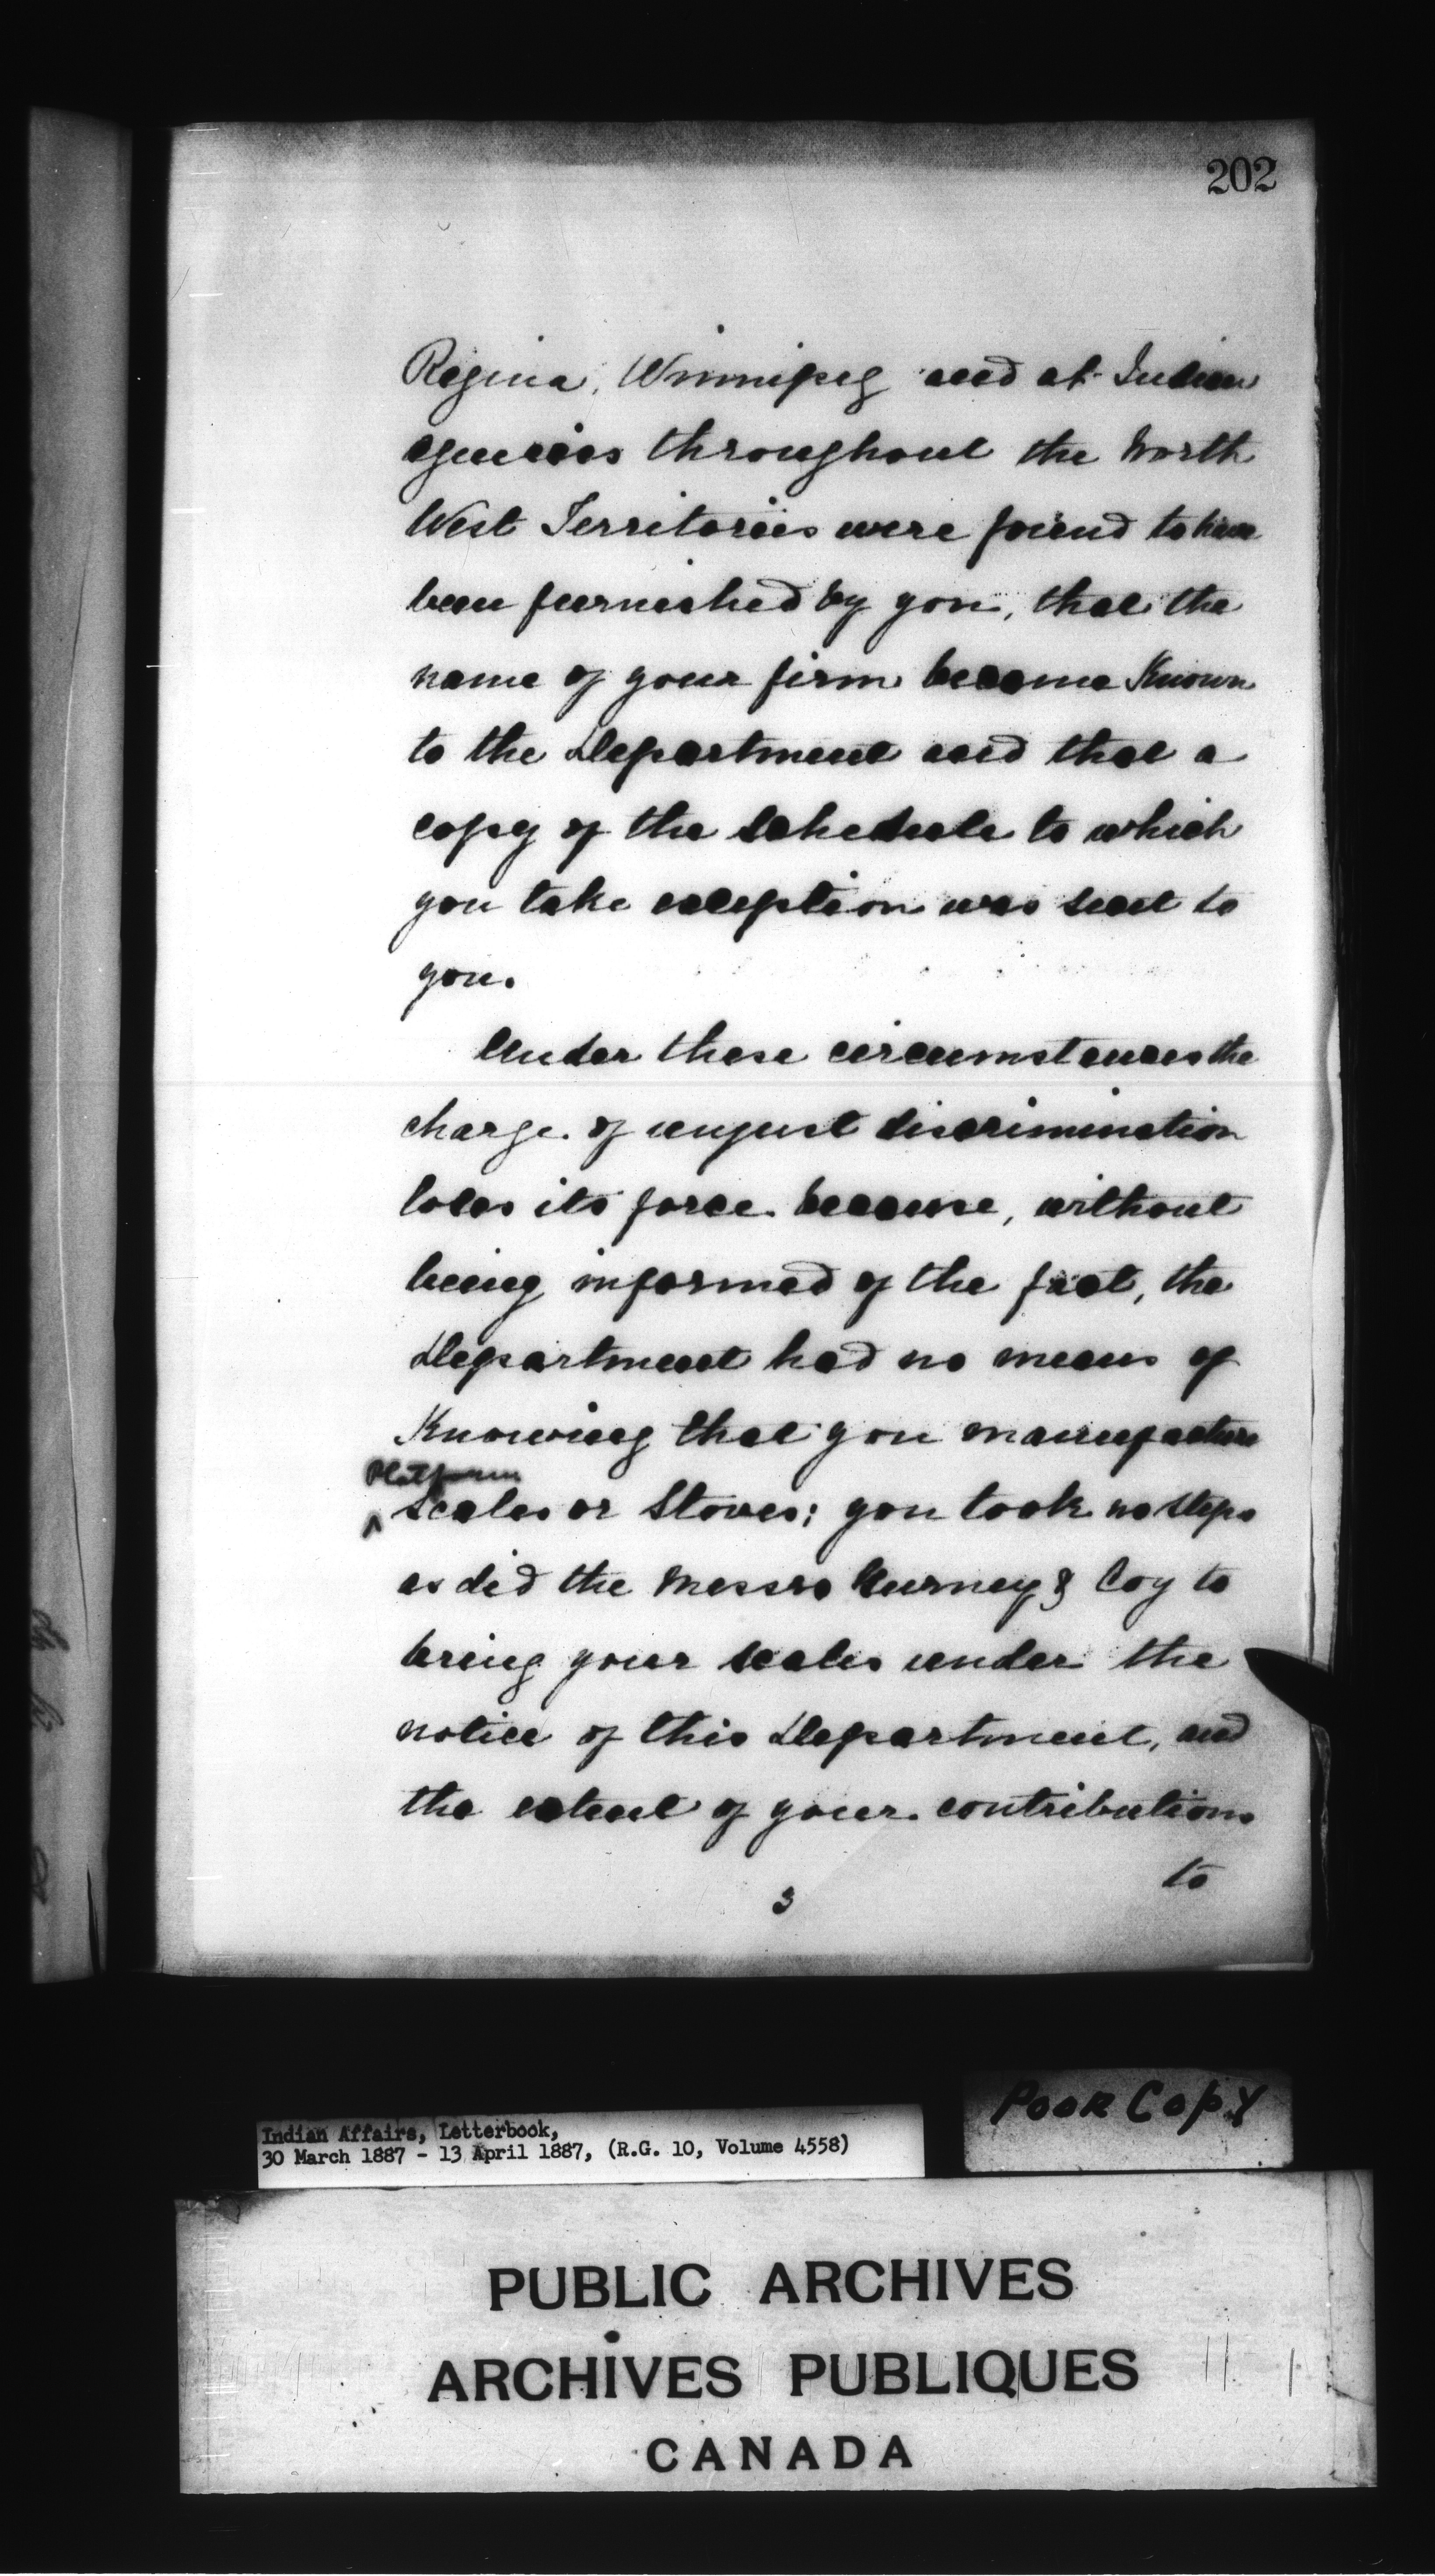 202
Regina, Winnipeg and at Indian
agencies throughout the North
West Territories were found to have
been furnished by you, that the
name of your firm became Known
to the Department and that a
copy of the schedule to which
you take exception was sent to
you.
Under these circumstances the
charge of unjust discrimination
loses its force because, without
being informed of the fact, the
Department had no means of
Knowing that you manufacture
Platform
^ Scales or Stoves; you took no steps
as did the Messrs Gurney & Coy to
bring your scales under the
notice of this Department, and
the extent of your contributions
to
3
Poor Copy
Indian Affairs, Letterbook,
30 March 1887 - 13 April 1887, (R.G. 10, Volume 4558)
PUBLIC ARCHIVES
ARCHIVES PUBLIQUES
CANADA